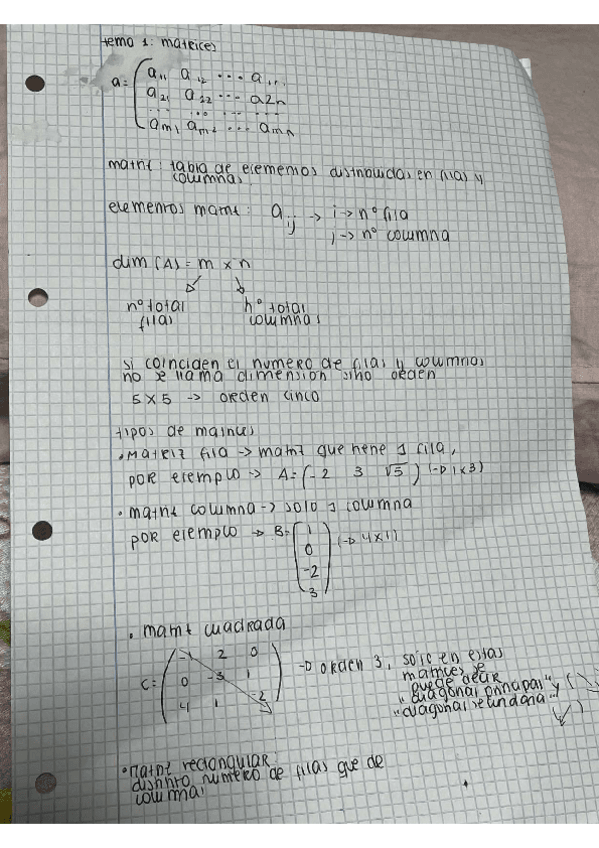 tema 1: matrices
a = ( a11 a12 ... a1n
a21 a22 ... a2n
... ... ... ...
am1 am2 ... amn
matriz: tabla de elementos distribuidas en filas y
columnas
elementos matriz: a ij -> i -> nº fila
j -> nº columna
dim (A) = m x n
nº total nº total
filas columnas
si coinciden el numero de filas y columnas
no se llama dimension sino orden
5 x 5 -> orden cinco
tipos de matrices
. Matriz fila -> matriz que tiene 1 fila,
por ejemplo -> A = (-2 3 √5) (-D 1x3)
. matriz columna -> solo 1 columna
por ejemplo -> B = ( 1 0 -2 3 ) (-D 4x1)
. matriz cuadrada
C = ( -1 2 0
0 -3 1
4 1 -2 )
-D orden 3, solo en estas
matrices se
puede decir
"diagonal principal" y
"diagonal secundaria"
. Matriz rectangular:
distinto numero de filas que de
columnas